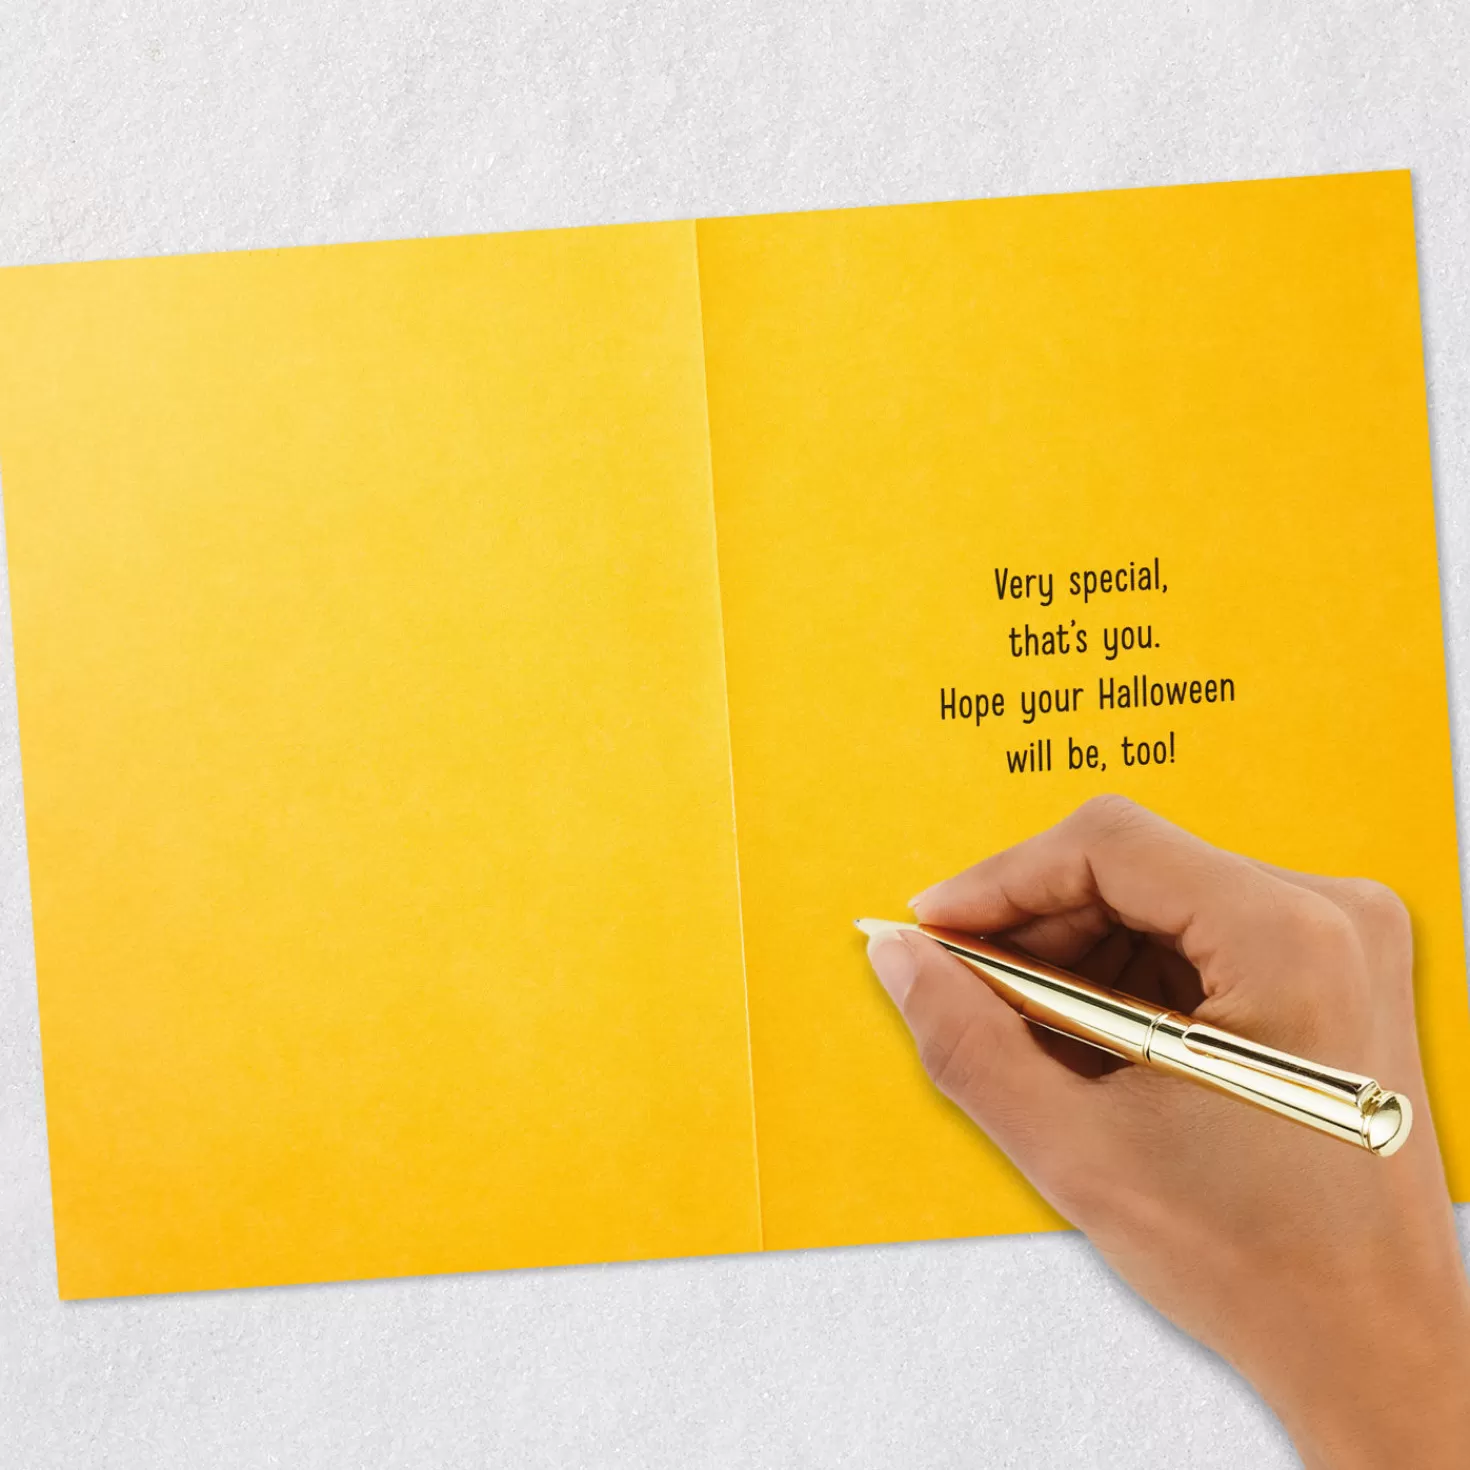 Very special,
that's you.
Hope your Halloween
will be, too!